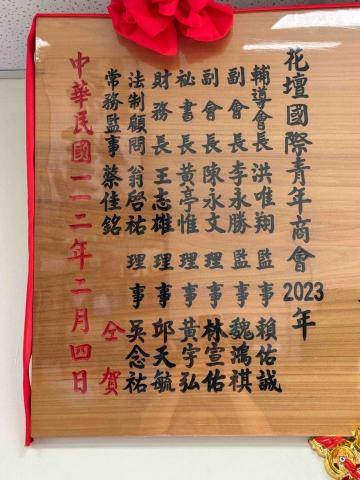 花壇國際青年商會2023年
輔導會長 洪唯翔 監事 賴佑誠
副會長 李永勝 監事 魏鴻祺
副會長 陳永文 理事 林宣佑
祕書長 黃亭惟 理事 黃宇弘
財務長 王志雄 理事 邱天毓
法制顧問 翁啓祐 理事 吳念祐
常務監事 蔡佳銘 仝賀
中華民國一一二年二月四日